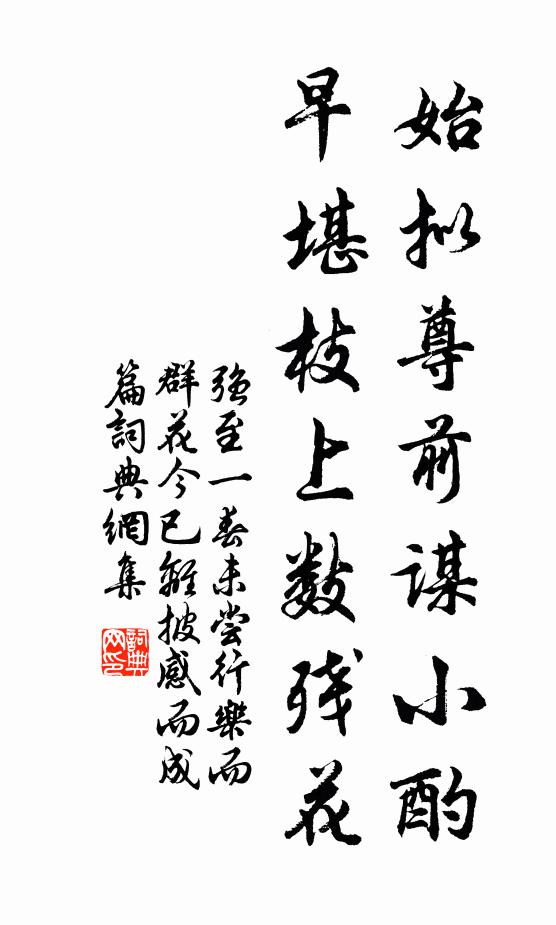 始拟尊前谋小酌
早堪枝上数残花
强至一春未尝行樂而
群花今已離披感而成
篇詞典網集
詞典网印